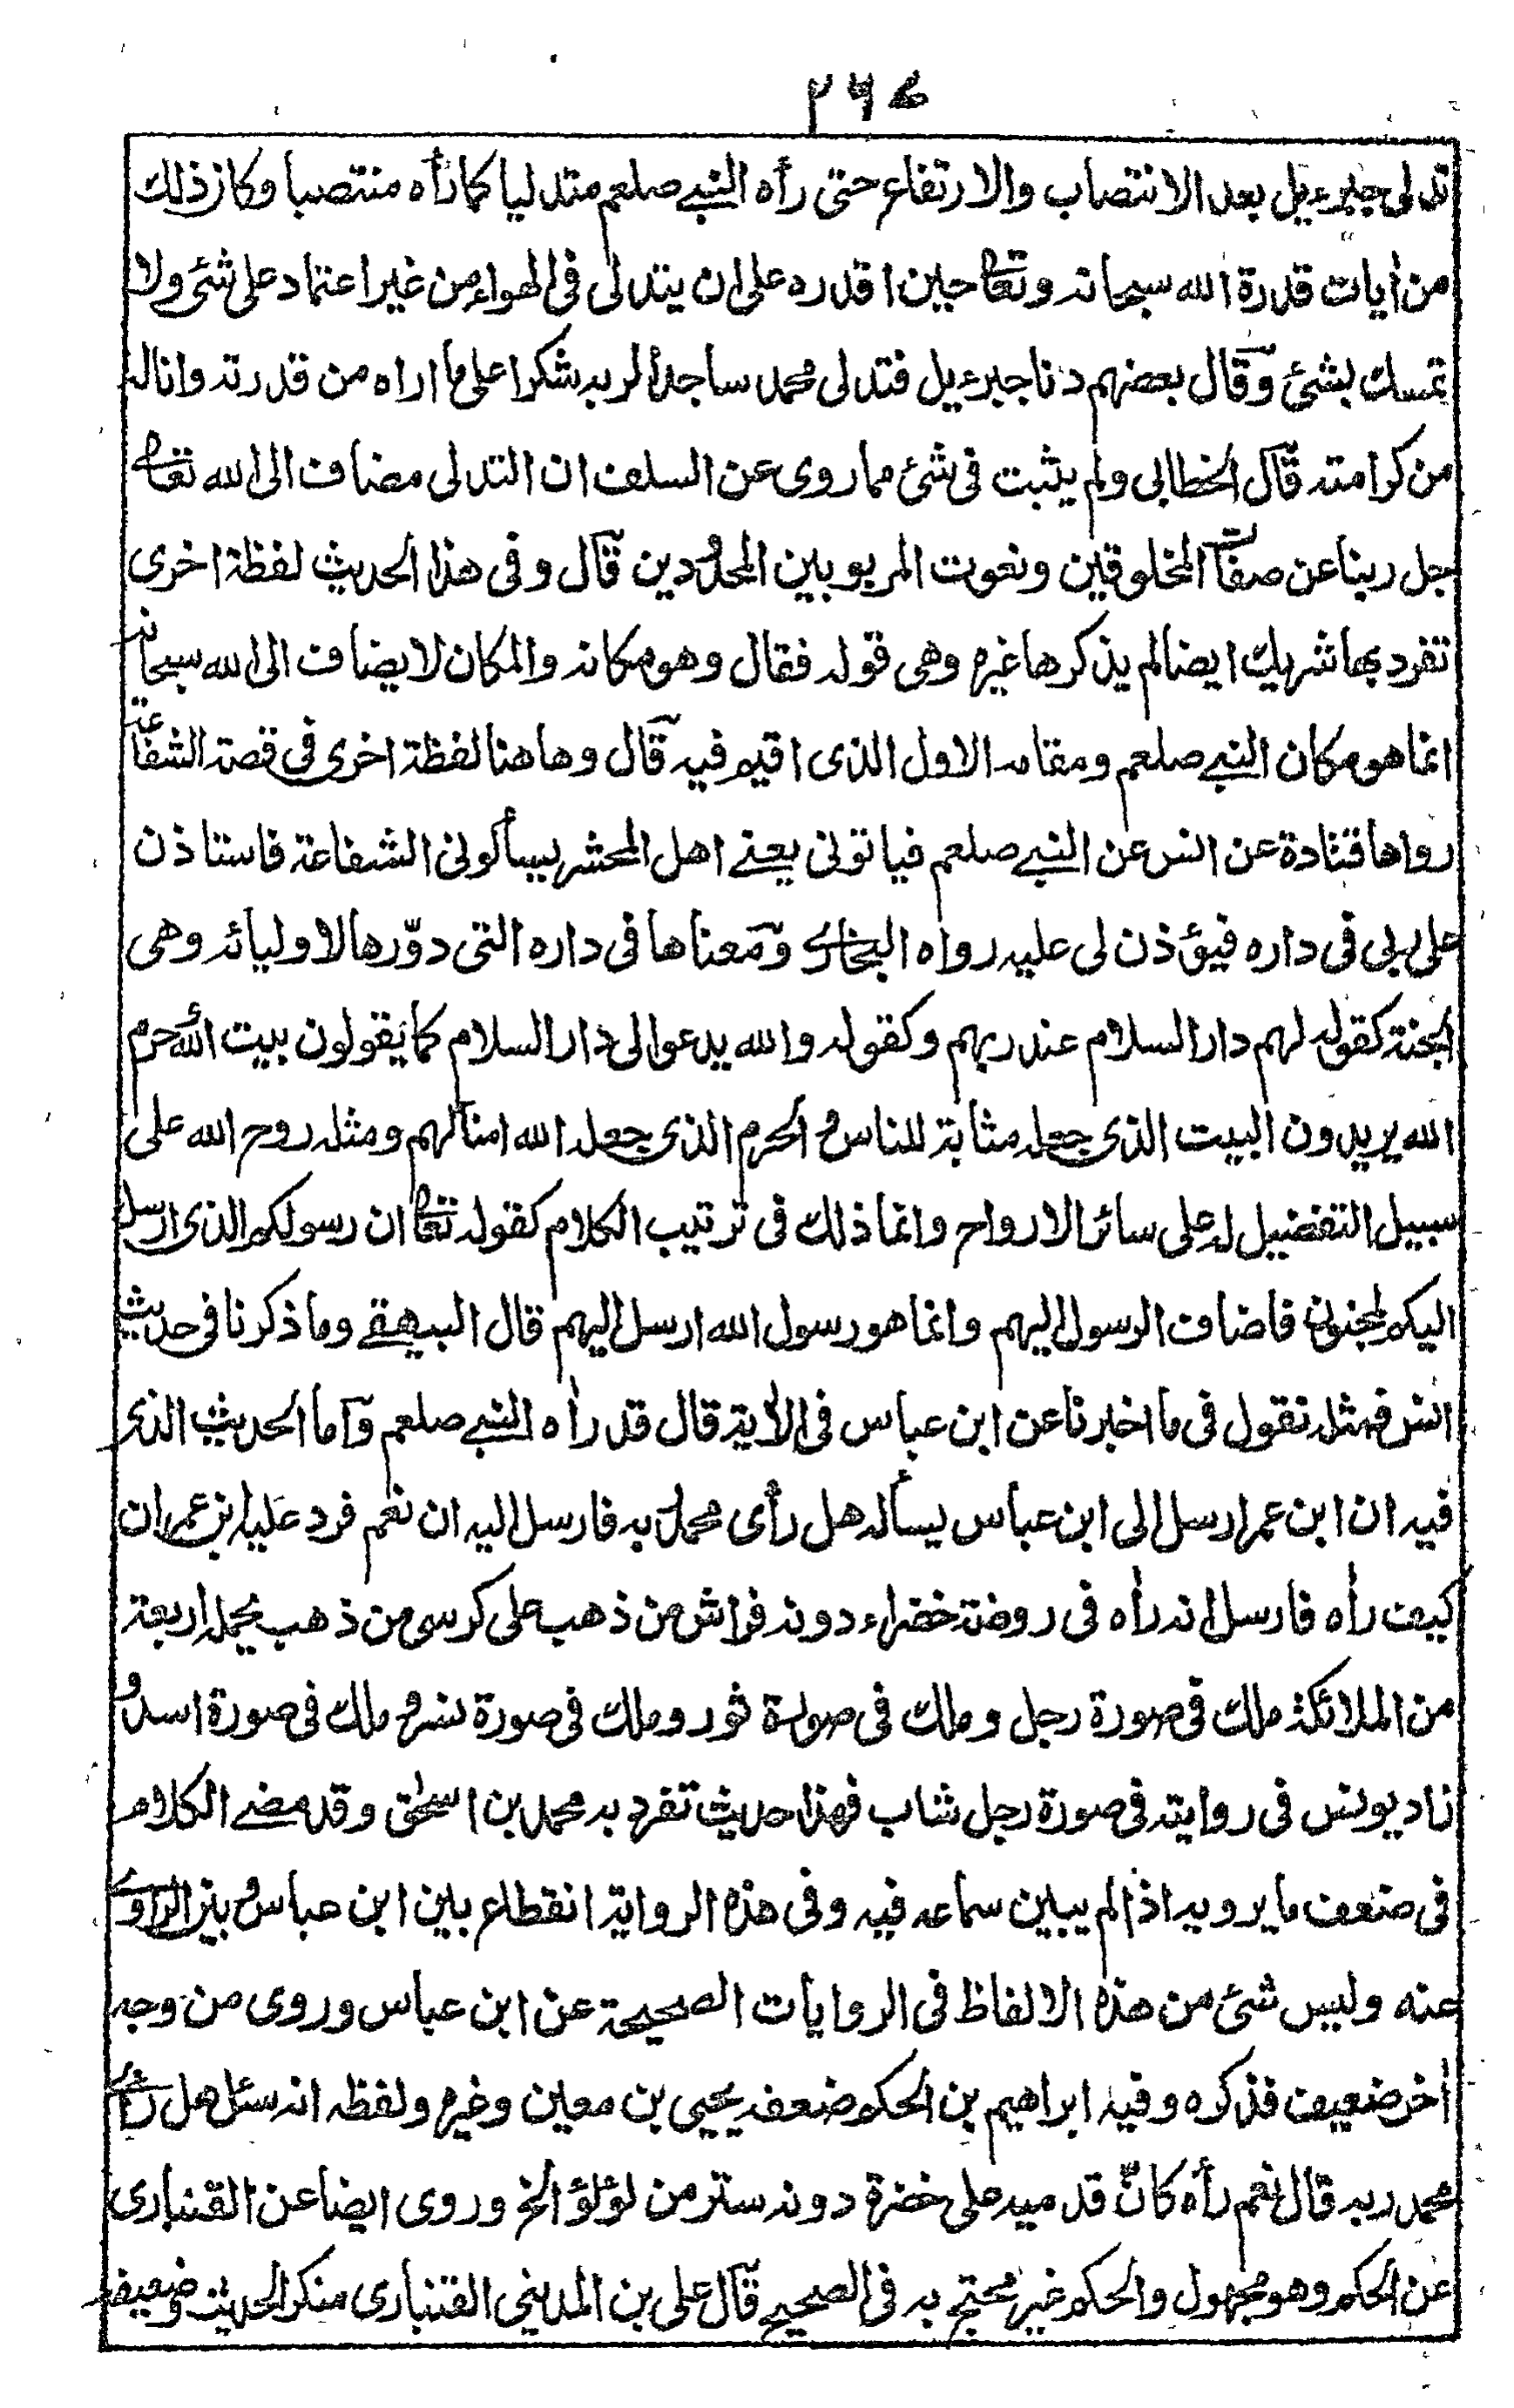 ۲۶۴
تدلى جبرءيل بعد الانتصاب والارتفاع حتى رأه النبي صلعم متدليا كما رأه منتصبا وكان ذلك
من أيات قدرة الله سبحانه وتعا حين اقدره على ان يتدلى فى الهواء من غير اعتماد على شئ ولا
تمسك بشئ وقال بعضهم دنا جبرءيل فتدلى محمد ساجدا لربه شكرا على ما اراه من قدرته وانا له
من كرامته قال الخطابى ولم يثبت فى شئ مما روى عن السلف ان التدلى مضاف الى الله تعا
جل ربنا عن صفات المخلوقين ونعوت المربوبين المحدودين قال وفى هذا الحديث لفظة اخرى
تفرد بها شريك ايضا لم يذكرها غيره وهى قوله فقال وهو مكانه والمكان لا يضاف الى الله سبحانه
انما هو مكان النبي صلعم ومقامه الاول الذى اقيم فيه قال وهاهنا لفظة اخرى فى قصة الشفاعة
رواها قتادة عن انس عن النبي صلعم فياتونى يعنے اهل المحشر يسألونى الشفاعة فاستاذن
على ربى فى داره فيؤذن لى عليه رواه البخارى ومعناها فى داره التى دوّرها لاوليائه وهى
الجنة كقوله لهم دار السلام عند ربهم وكقوله والله يدعو الى دار السلام كما يقولون بيت الله حرم
الله يريدون البيت الذى جعله مثابة للناس والحرم الذى جعله الله امنا لهم ومثله روح الله على
سبيل التفضيل له على سائر الارواح وانما ذلك فى ترتيب الكلام كقوله تعا ان رسولكم الذى ارسل
اليكم لمجنون فاضاف الرسول اليهم وانما هو رسول الله ارسل اليهم قال البيهقے وما ذكرنا فى حديث
انس فمثله نقول فى ما اخبرنا عن ابن عباس فى الأية قال قد رأه النبي صلعم وأما الحديث الذى
فيه ان ابن عمر ارسل الى ابن عباس يسأله هل رأى محمد ربه فارسل اليه ان نعم فرد عليه ابن عمر ان
كيف رأه فارسل انه رأه فى روضة خضراء دونه فراش من ذهب على كرسى من ذهب يحمله اربعة
من الملائكة ملك فى صورة رجل وملك فى صورة ثور وملك فى صورة نسر وملك فى صورة اسد و
زاد يونس فى روايته فى صورة رجل شاب فهذا حديث تفرد به محمد بن اسحٰق وقد مضے الكلام
فى ضعف ما يرويه اذا لم يبين سماعه فيه وفى هذه الرواية انقطاع بين ابن عباس وبين الراوى
عنه وليس شئ من هذه الالفاظ فى الروايات الصحيحة عن ابن عباس وروى من وجه
أخر ضعيف فذكره وفيه ابراهيم بن الحكم ضعفه يحيى بن معين وغيره ولفظه انه سئل هل رأى
محمد ربه قال نعم رأه كانّ قدميه على خضرة دونه ستر من لؤلؤ الخ وروى ايضا عن القنبارى
عن الحكم وهو مجهول والحكم غير محتج به فى الصحيح قال على بن المدينى القنبارى منكر الحديث وضعيفه